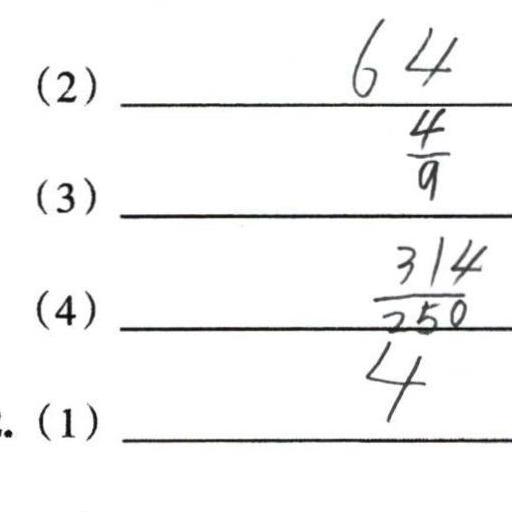 (2) 64
(3) 4/9
(4) 314/250
(1) 4